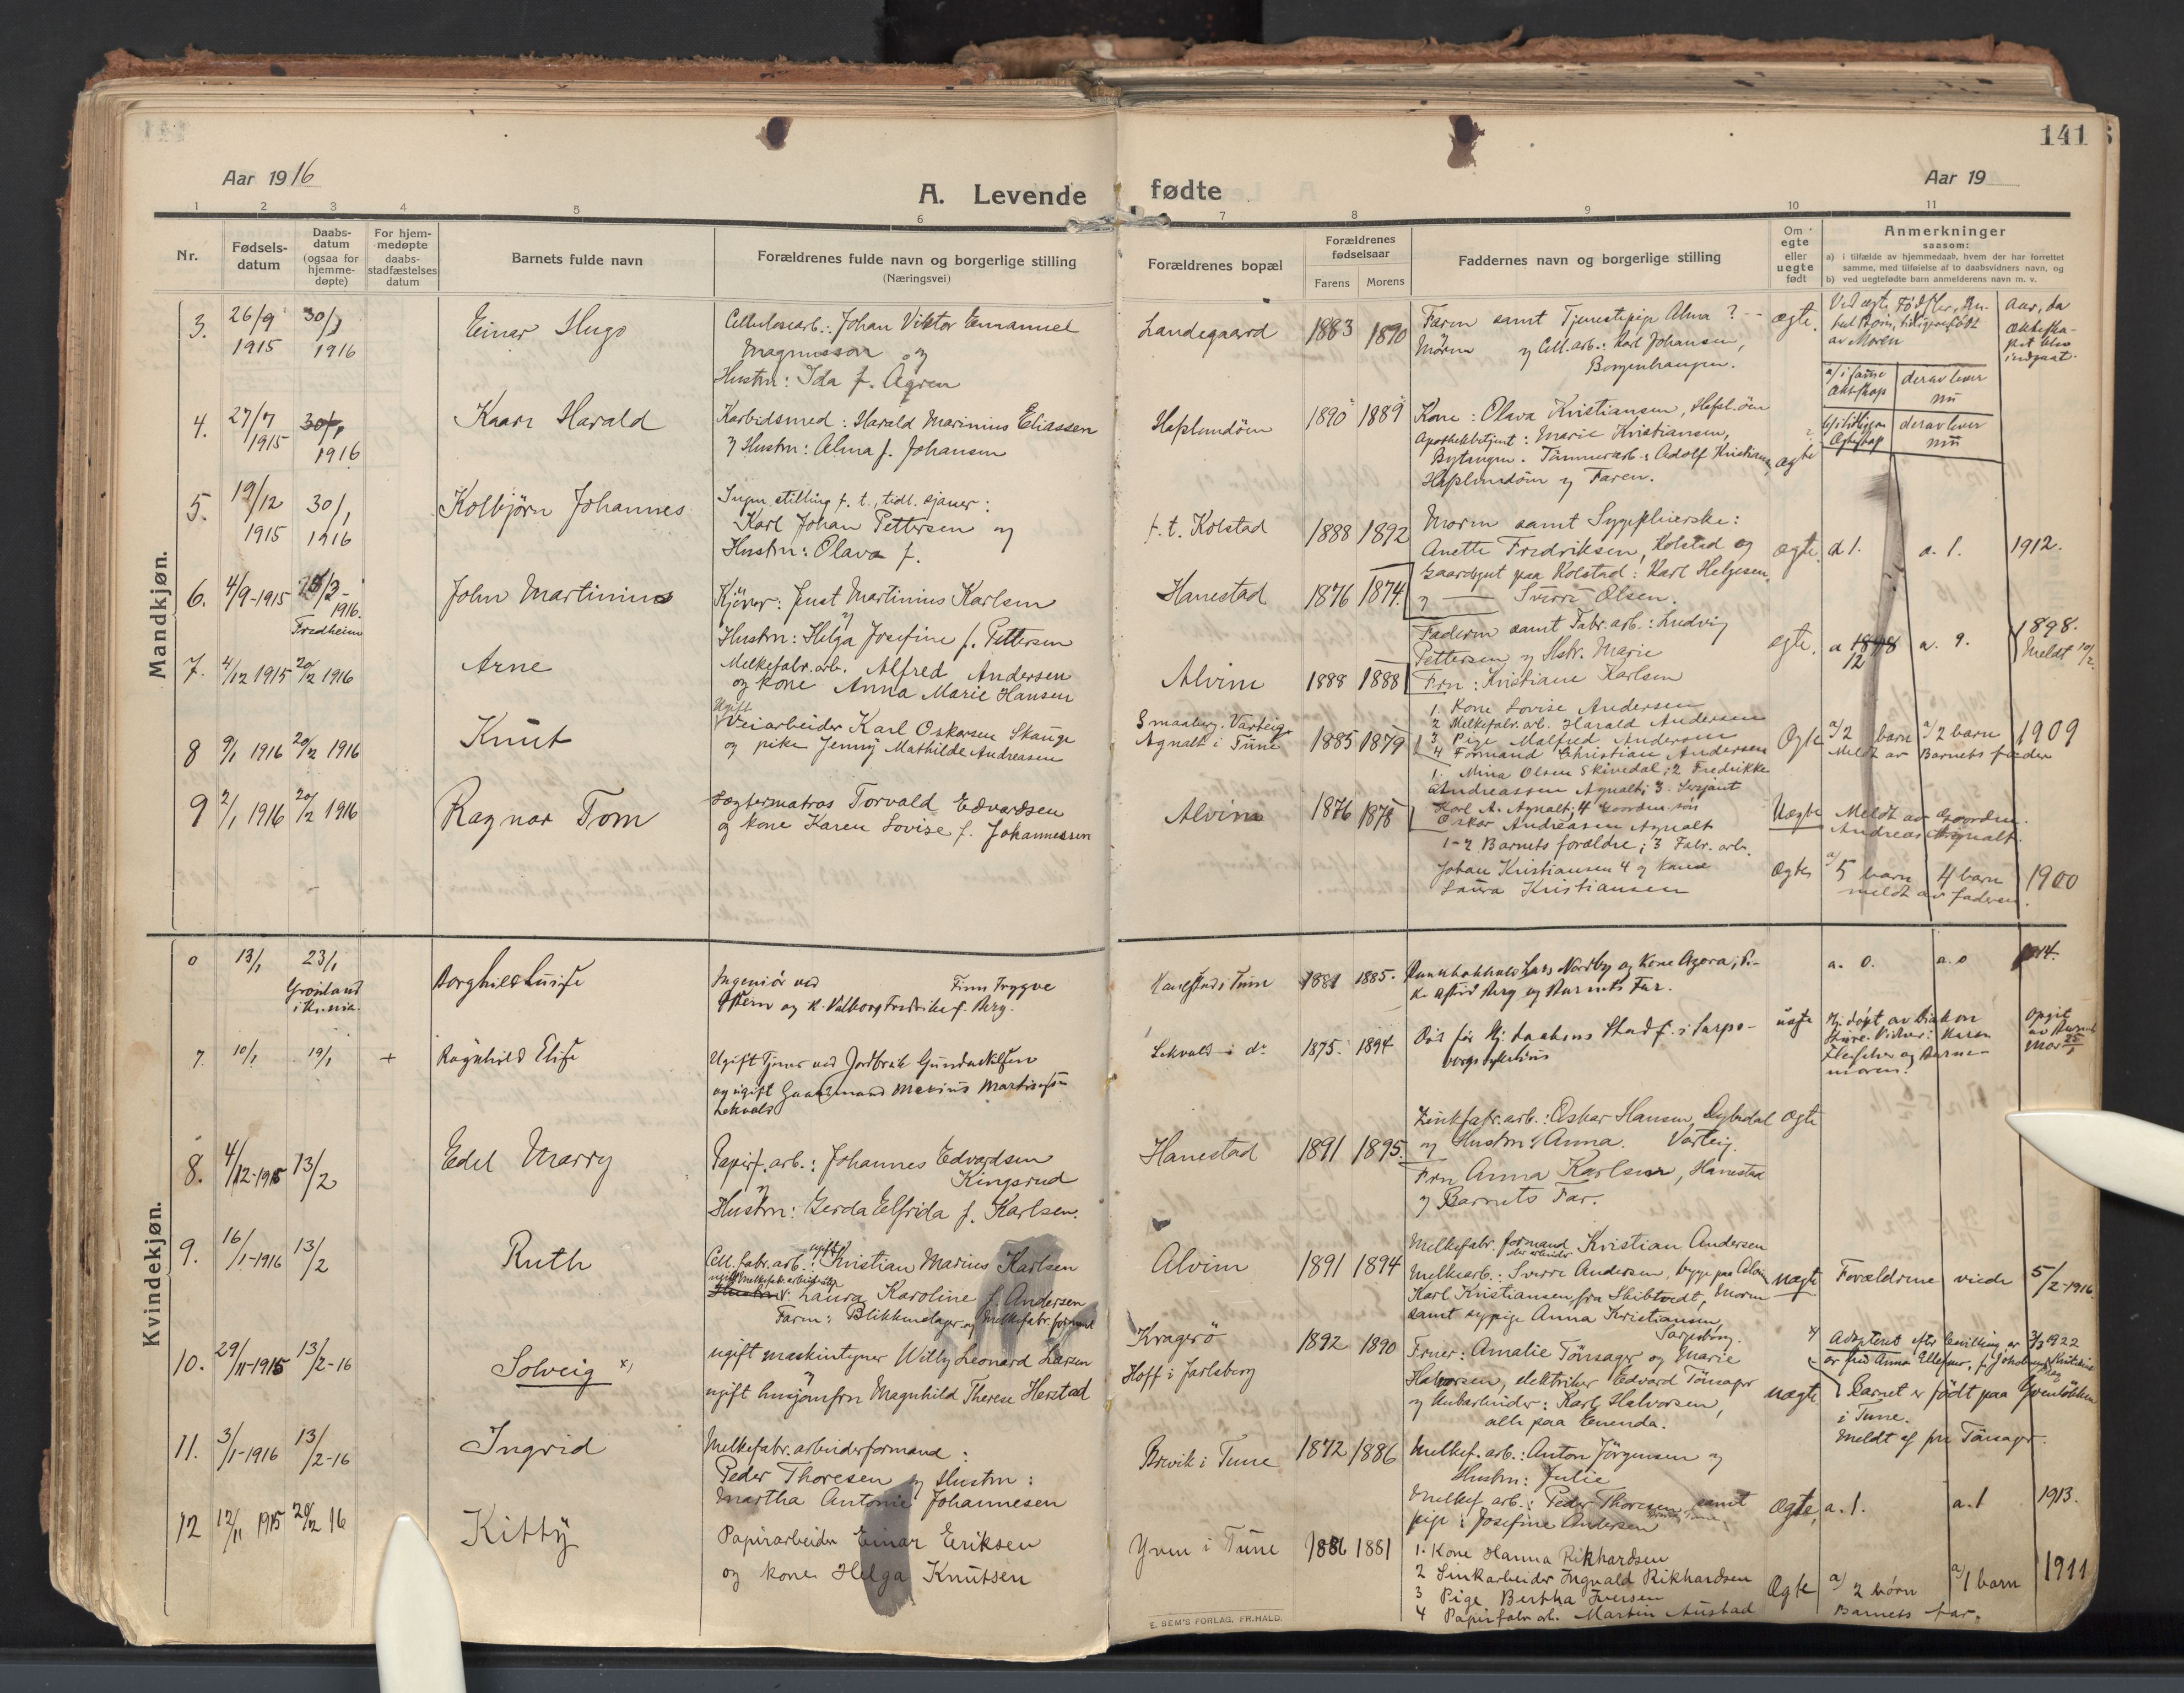 141
Aar 1916
A. Levende fødte
Aar 19
1 2 3 4 5 6 7 8 9 10 11
Nr.
Fødsels-
datum
Daabs-
datum
(ogsaa for
hjemme-
døpte)
For hjem-
medøpte
daabs-
stadfæstelses
datum
Barnets fulde navn
Forældrenes fulde navn og borgerlige stilling
(Næringsvei)
Forældrenes bopæl
Forældrenes
fødselsaar
Farens Morens
Faddernes navn og borgerlige stilling
Om
egte
eller
uegte
født
Anmerkninger
saasom:
a) i tilfælde av hjemmedaab, hvem der har forrettet
samme, med tilføielse af to daabsvidners navn, og
b) ved uegtefødte barn anmelderens navn m. v.
Mandkjøn.
3. 26/9 1915 30/1 1916
Einar Hugo
Cellulosearb.: Johan Viktor Emanuel
Magnusson og
Hustru: Ida f. Ågren
Landegaard 1883 1890
Faren samt Tjenestepige Alma ? --
Moren og Cell.arb.: Karl Johansen,
Borgenhaugen.
ægte.
av Moren
Aar, da
ekteska-
pet blev
indgaat.
a/ i samme
Ektskap
derav lever
nu
derav lever
nu
4. 27/7 1915 30/1 1916
Kaare Harald
Karbidsmed: Harald Marinius Eliassen
og Hustru: Alma f. Johansen
Hafslundøen 1890 1889
Kone: Olava Kristiansen, Hafsl.øen
Apothekbetjent: Marie Kristiansen,
Adolf Kristians
Hafslundøen og Faren.
ægte
5. 19/12 1915 30/1 1916
Kolbjørn Johannes
Ingen stilling f. t., tidl. sjauer:
Karl Johan Pettersen og
Hustru: Olava f.
f. t. Kolstad 1888 1892
Moren samt Sygepleierske:
Anette Fredriksen, Kolstad og
Gaardsgut paa Kolstad: Karl Helgesen,
og — Sverre Olsen.
ægte a 1. a. 1. 1912.
6. 4/9-1915 1916.
Fredheim
John Martinius
Kjører: Just Martinius Karlsen
og
Hustru: Helga Josefine f. Pettersen
Hanestad 1876 1874.
Faderen samt Fabr.arb.: Ludvig
Pettersen og Hstr. Marie
Fru: Kristiane Karlsen
ægte. a 12 a. 9. 1898.
Meldt 10/2
7. 4/12 1915 20/2 1916
Arne
Melkefabr.arb. Alfred Andersen
og kone Anna Marie Hansen
Alvim 1888 1888
1. Kone Lovise Andersen
2 Melkefabr.arb. Harald Andersen
3 Pige Malfred Andersen
4 Formand Christian Andersen
Ægte a/2 barn a/2 barn 1909
Meldt av Barnets fader
8 9/1 1916 20/2 1916
Knut
Ugift
Veiarbeider Karl Oskarsen Skauge
og pike Jenny Mathilde Andreasen
Smaaberg. Varteig
Agnalt i Tune 1885 1879
1. Mina Olsen Skivedal; 2 Fredrikke
Andreassen Agnalt; 3. Sersjant
Karl A. Agnalt; 4 Gaardm. søn
Oskar Andreasen Agnalt
Uægte Meldt av Gaardm.
Andreas Agnalt.
9 2/1 1916 20/2 1916
Ragnar Tom
Lægtermatros Torvald Edvardsen
og kone Karen Lovise f. Johannessen
Alvim 1876 1878
1-2 Barnets forældre; 3 Fabr. arb.
Johan Kristiansen 4 og kone
Laura Kristiansen
Ægte a/ 5 barn 4 barn 1900
meldt av faderen.
Kvindekjøn.
13/1 23/1
Grønland
i Kr.ania.
Borghild Luise
Ingeniør ved Finn Trygve
og K. Valborg Fredrikke f. Berg.
Hanestad i Tune 1881 1885.
Lars Nordby og Kone Agora;
Astrid Berg og Barnets Far.
a. 0. a. 0 1914.
7. 10/1 19/1 +
Ragnhild Elise
Ugift Tjener ved Jordbruk Gunda Nilsen
og ugift Gaardmand Marius Martinsen
Lekvold
Lekvold i do 1875. 1894
uegte
8. 4/12-1915 13/2
Edel Marry
Papirf.arb.: Johannes Edvardsen
Kingsrud
og
Hustru: Gerda Elfrida f. Karlsen.
Hanestad 1891 1895.
Zinkfabr.arb.: Oskar Hansen, Dybedal
og Hustru: Anna. Varteig.
Fru Anna Karlsen, Hanestad
og Barnets Far.
Ægte
9. 16/1-1916 13/2
Ruth
Cell. fabr. arb.: ugift Kristian Marius Karlsen
Laura Karoline f. Andersen
Faren: Blikkenslager og Melkefabr. formand
Alvim 1891 1894
Melkefabr. formand Kristian Andersen
Melkearb.: Sverre Andersen, begge paa Alvim
Karl Kristiansen fra Skibtvedt, Moren
samt sypige Anna Kristiansen,
Sarpsborg.
uægte Forældrene viede 5/2-1916.
10. 29/11-1915 13/2-16
Solveig x)
ugift maskintegner Willy Leonard Larsen
og
ugift husjomfru Magnhild Therese Herstad
Kragerø
Hoff i Jarlsberg 1892 1890
Fruer: Amalie Tönsager og Marie
Halvorsen, elektriker Edvard Tönsager
og Karl Halvorsen,
alle paa Enenda.
uægte
x) Adopteret efter bevilling av 3/3 1922
Barnet er født paa Yvenløkken
i Tune.
Meldt af fru Tönsager.
11. 3/1-1916 13/2-16
Ingrid
Melkefabr.arbeiderformand:
Peder Thoresen og Hustru:
Martha Antonie Johannesen
Brevik i Tune 1872 1886
Melkef.arb.: Anton Jörgensen og
Hustru: Julie
Melkef.arb.: Peder Thoresen samt
pige: Josefine Andersen
Ægte, a. 1. a. 1 1913.
12 12/11 1915 20/2 16
Kitty
Papirarbeider Einar Eriksen
og kone Helga Knutsen
Yven i Tune 1886 1881
1. Kone Hanna Rikhardsen
2 Sinkarbeider Ingvald Rikhardsen
3 Pige Bertha Iversen
4 Papirfabr. arb. Martin Austad
Ægte a/ 2 børn a/1 barn 1911
Barnets far.
E. SEM'S FORLAG, FR.HALD.